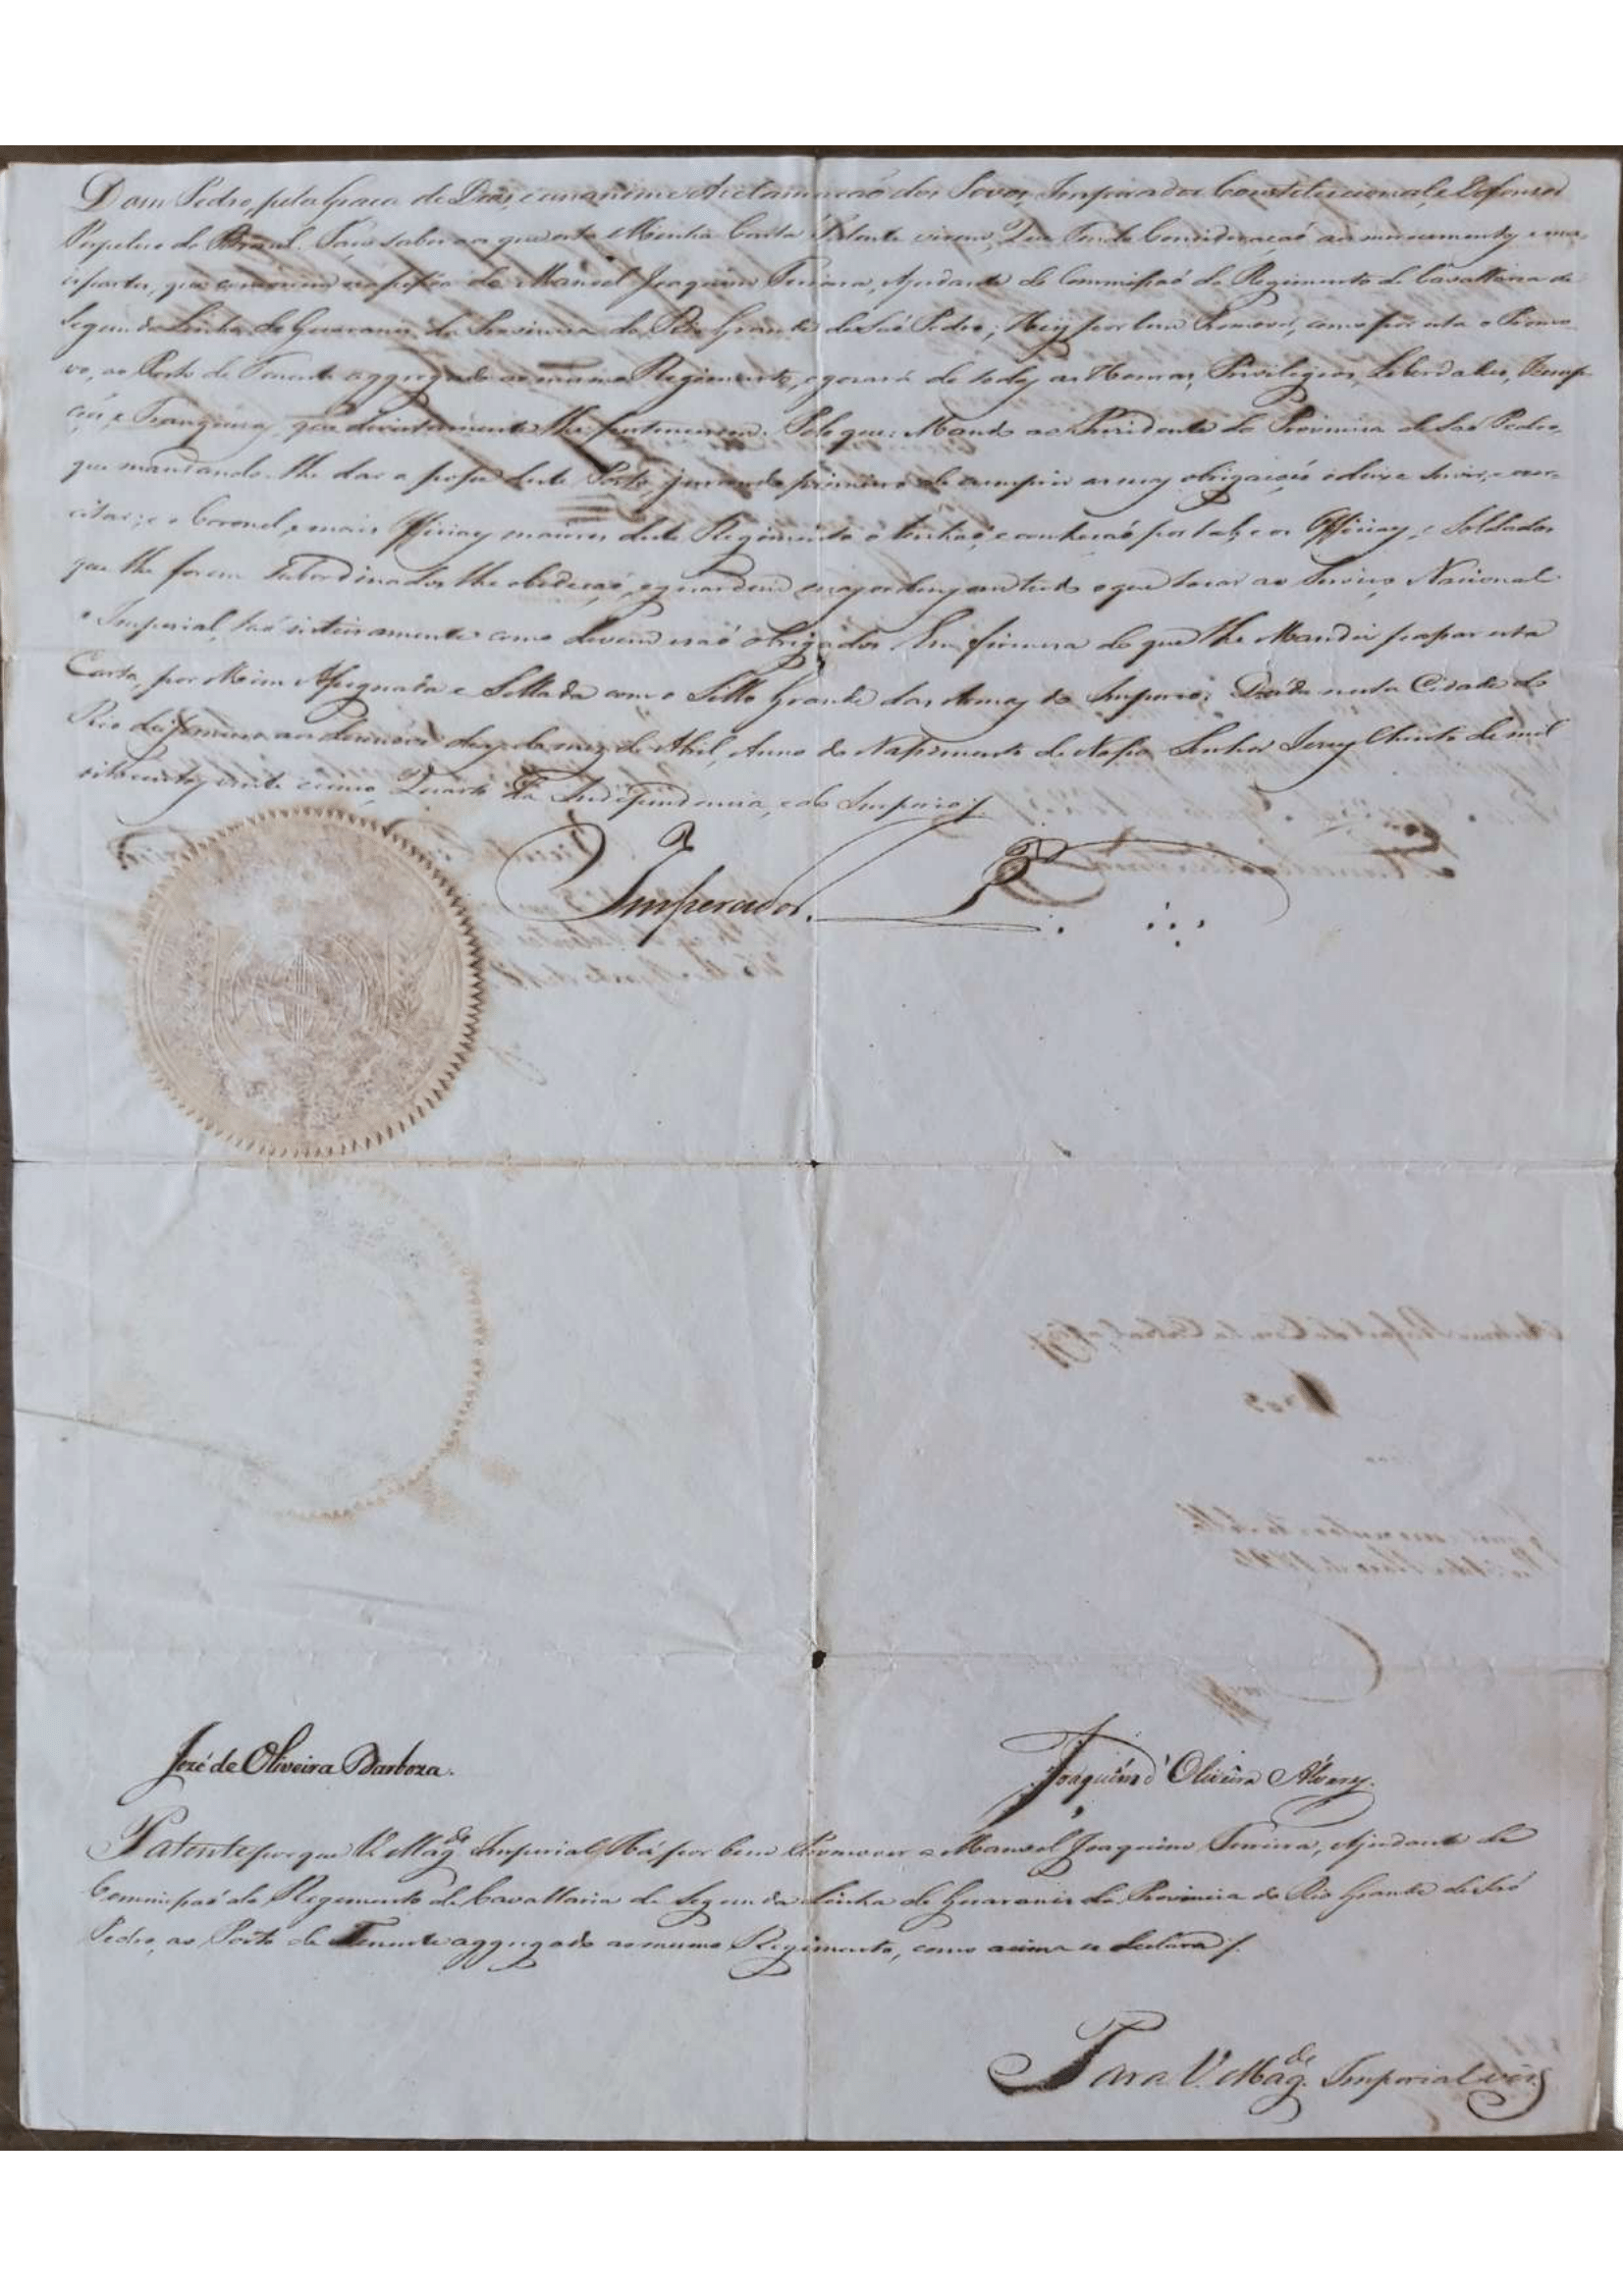 Dom Pedro, pela Graça de Deos, e unanime Acclamação dos Povos, Imperador Constitucional, e Defensor
Perpetuo do Brasil. Faço saber aos que esta Minha Carta Patente virem, Que Tendo Consideração ao merecimento, e ma-
is partes, que concorrem na pessoa de Manoel Joaquim Ferreira, Ajudante de Commissaõ do Regimento de Cavallaria de
Segunda Linha de Guaranis da Provincia do Rio Grande de Saõ Pedro; Hey por bem Promover, como por esta o Promo-
vo, ao Posto de Tenente aggregado ao mesmo Regimento, e gozará de todas as Honras, Privilegios, Liberdades, Izemp-
ções, e Franquezas, que direitamente lhe pertencerem. Pelo que: Mando ao Presidente da Provincia de Saõ Pedro,
que mandando-lhe dar a posse deste Posto, jurando primeiro de cumprir as suas obrigações o deixe servir, e exer-
citar; e o Coronel, e mais Officiaes maiores deste Regimento o tenhaõ, e conheçaõ por tal; e os Officiaes, e Soldados
que lhe forem subordinados lhe obedeçaõ, e guardem suas ordens em tudo o que tocar ao Serviço Nacional
e Imperial, taõ inteiramente como devem e saõ obrigados. Em firmeza do que lhe Mandei passar esta
Carta, por Mim Assignada e Sellada com o Sello Grande das Armas do Imperio. Dada nesta Cidade do
Rio de Janeiro aos dezenove dias do mez de Abril, Anno do Nascimento de Nosso Senhor Jesus Christo de mil
oitocentos vinte e cinco, Quarto da Independencia, e do Imperio./.
Imperador.
Jozé de Oliveira Barboza.
Joaquim d'Oliveira Alvares.
Patente por que V. Mag.de Imperial Há por bem Promover a Manoel Joaquim Ferreira, Ajudante de
Commissaõ do Regimento de Cavallaria de Segunda Linha de Guaranis da Provincia do Rio Grande de Saõ
Pedro, ao Posto de Tenente aggregado ao mesmo Regimento, como acima se declara./.
Para V. Mag.de Imperial ver.